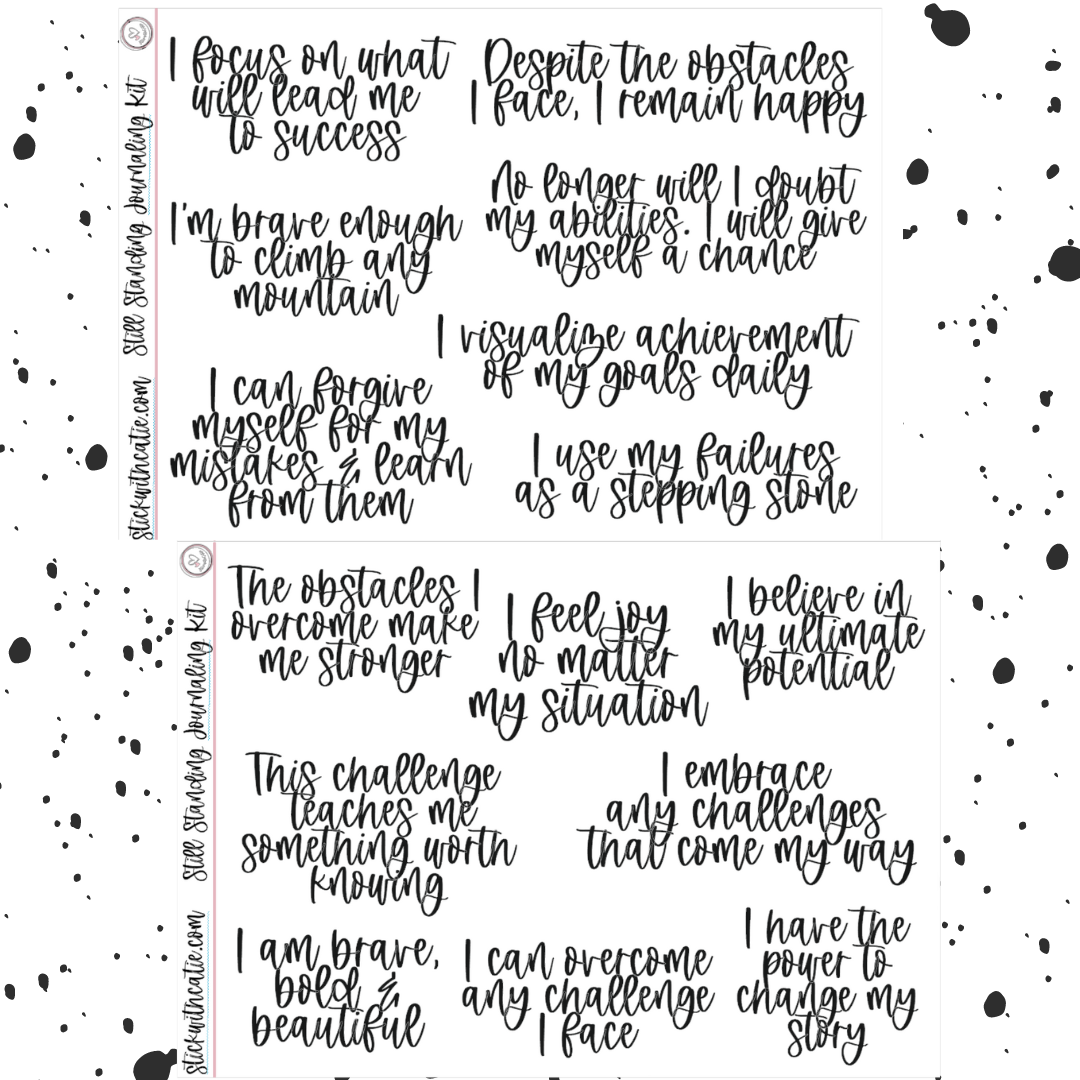 Still Standing Journaling Kit
stickwithcatie.com
I focus on what
will lead me
to success
Despite the obstacles
I face, I remain happy
No longer will I doubt
my abilities. I will give
myself a chance
I'm brave enough
to climb any
mountain
I visualize achievement
of my goals daily
I can forgive
myself for my
mistakes & learn
from them
I use my failures
as a stepping stone
Still Standing Journaling Kit
stickwithcatie.com
The obstacles I
overcome make
me stronger
I feel joy
no matter
my situation
I believe in
my ultimate
potential
This challenge
teaches me
something worth
knowing
I embrace
any challenges
that come my way
I am brave,
bold &
beautiful
I can overcome
any challenge
I face
I have the
power to
change my
story